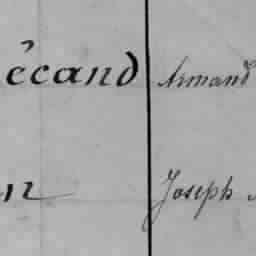 écand Armand
n Joseph